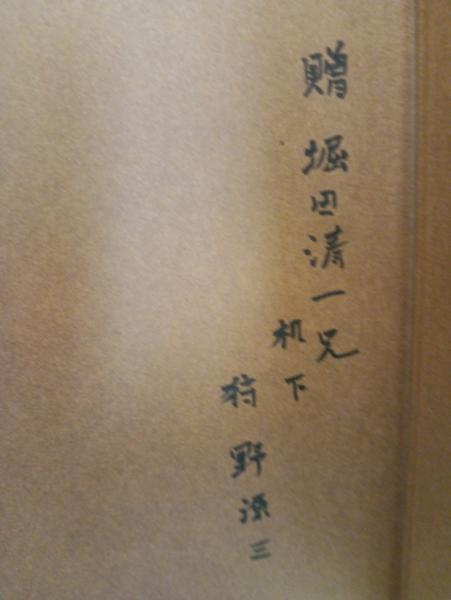 贈 堀田清一兄
机下
狩野源三